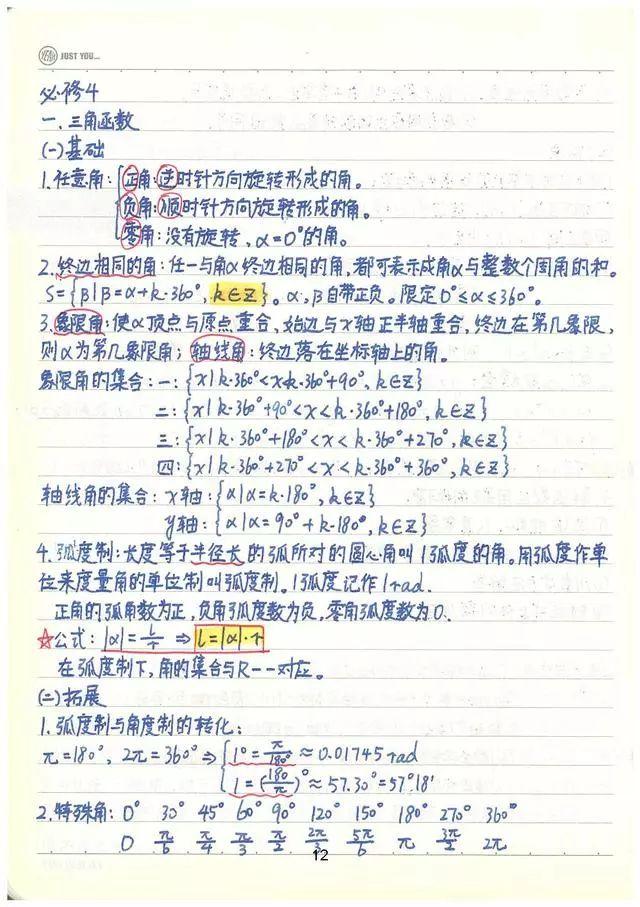 YEAH JUST YOU...
必修4
一、三角函数
(一)基础
1.任意角:{正角:逆时针方向旋转形成的角。
负角:顺时针方向旋转形成的角。
零角:没有旋转,α=0°的角。
2.终边相同的角:任一与角α终边相同的角,都可表示成角α与整数个周角的和。
S={β|β=α+k·360°,k∈Z}。α、β自带正负。限定0°≤α≤360°。
3.象限角:使α顶点与原点重合,始边与x轴正半轴重合,终边在第几象限,
则α为第几象限角;轴线角:终边落在坐标轴上的角。
象限角的集合:一:{x|k·360°<x<k·360°+90°,k∈Z}
二:{x|k·360°+90°<x<k·360°+180°,k∈Z}
三:{x|k·360°+180°<x<k·360°+270°,k∈Z}
四:{x|k·360°+270°<x<k·360°+360°,k∈Z}
轴线角的集合:x轴:{α|α=k·180°,k∈Z}
y轴:{α|α=90°+k·180°,k∈Z}
4.弧度制:长度等于半径长的弧所对的圆心角叫1弧度的角。用弧度作单
位来度量角的单位制叫弧度制。1弧度记作1rad.
正角的弧角数为正,负角弧度数为负,零角弧度数为0.
☆公式:|α|=l/r ⇒ l=|α|·r
在弧度制下,角的集合与R一一对应。
(二)拓展
1.弧度制与角度制的转化:
π=180°,2π=360°⇒{1°=π/180°≈0.01745rad
1=(180/π)°≈57.30°=57°18'
2.特殊角:0° 30° 45° 60° 90° 120° 150° 180° 270° 360°
0 π/6 π/4 π/3 π/2 2π/3 5π/6 π 3π/2 2π
12